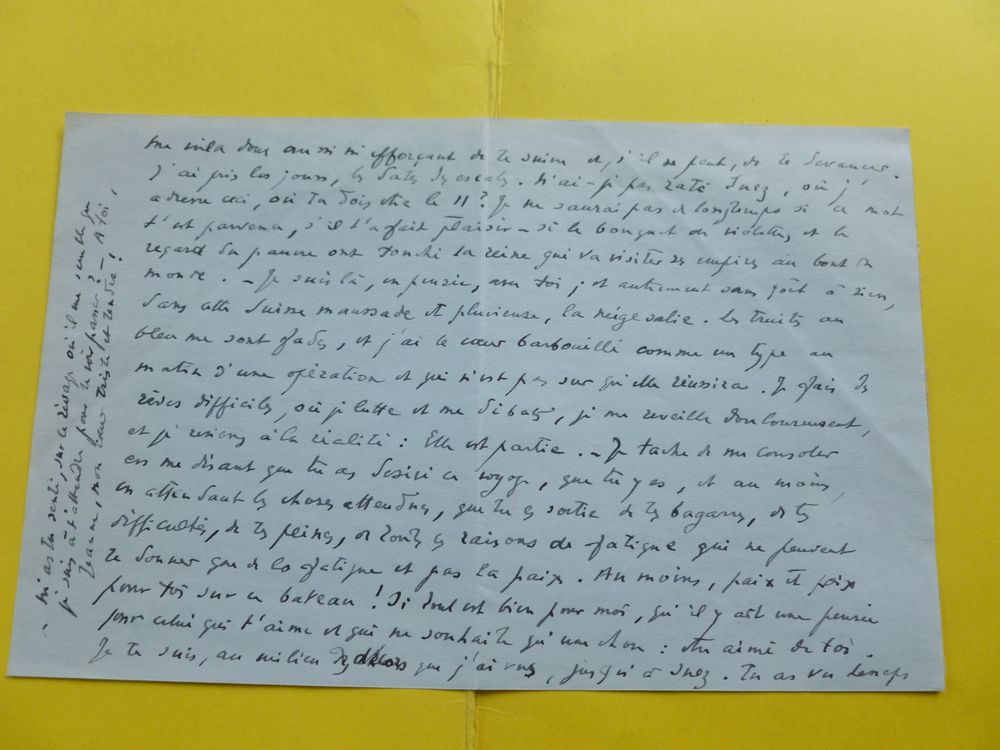 me voila donc aussi m'efforçant de te suivre et, s'il se peut, de te devancer.
J'ai pris les jours, les dates des escales. N'ai-je pas raté Suez, où j'
adresse ceci, où tu dois être le 11 ? Je ne saurai pas de longtemps si ce mot
t'est parvenu, s'il t'a fait plaisir – si le bouquet de violettes et le
regard du pauvre ont touché la reine qui va visiter ses empires au bout du
monde. – Je suis là, en pensée, avec toi ; et autrement sans goût à rien,
dans cette Suisse maussade et pluvieuse, la neige salie. Les truites au
bleu me sont fades, et j'ai le cœur barbouillé comme un type au
matin d'une opération et qui n'est pas sur qu'elle réussira. Je fais des
rêves difficiles, où je lutte et me débats, je me reveille douloureusement,
et je reviens à la réalité : Elle est partie. – Je tache de me consoler
en me disant que tu as désiré ce voyage, que tu y es, et au moins,
en attendant les choses attendues, que tu es sortie de tes bagarres, de tes
difficultés, de tes peines, de toutes ces raisons de fatigue qui ne peuvent
te donner que de la fatigue et pas la paix. Au moins, paix et joie
pour toi sur ce bateau ! Si tout est bien pour moi, qu'il y ait une pensée
pour celui qui t'aime et qui ne souhaite qu'une chose : être aimé de toi.
Je te suis, au milieu des décors que j'ai vus, jusqu'à Suez. Tu as vu Lesseps
M'as tu senti, sur le rivage où il me semble que
je suis à t'attendre pour te voir passer ? – A toi,
Jeanne, mon cœur triste et tendre !